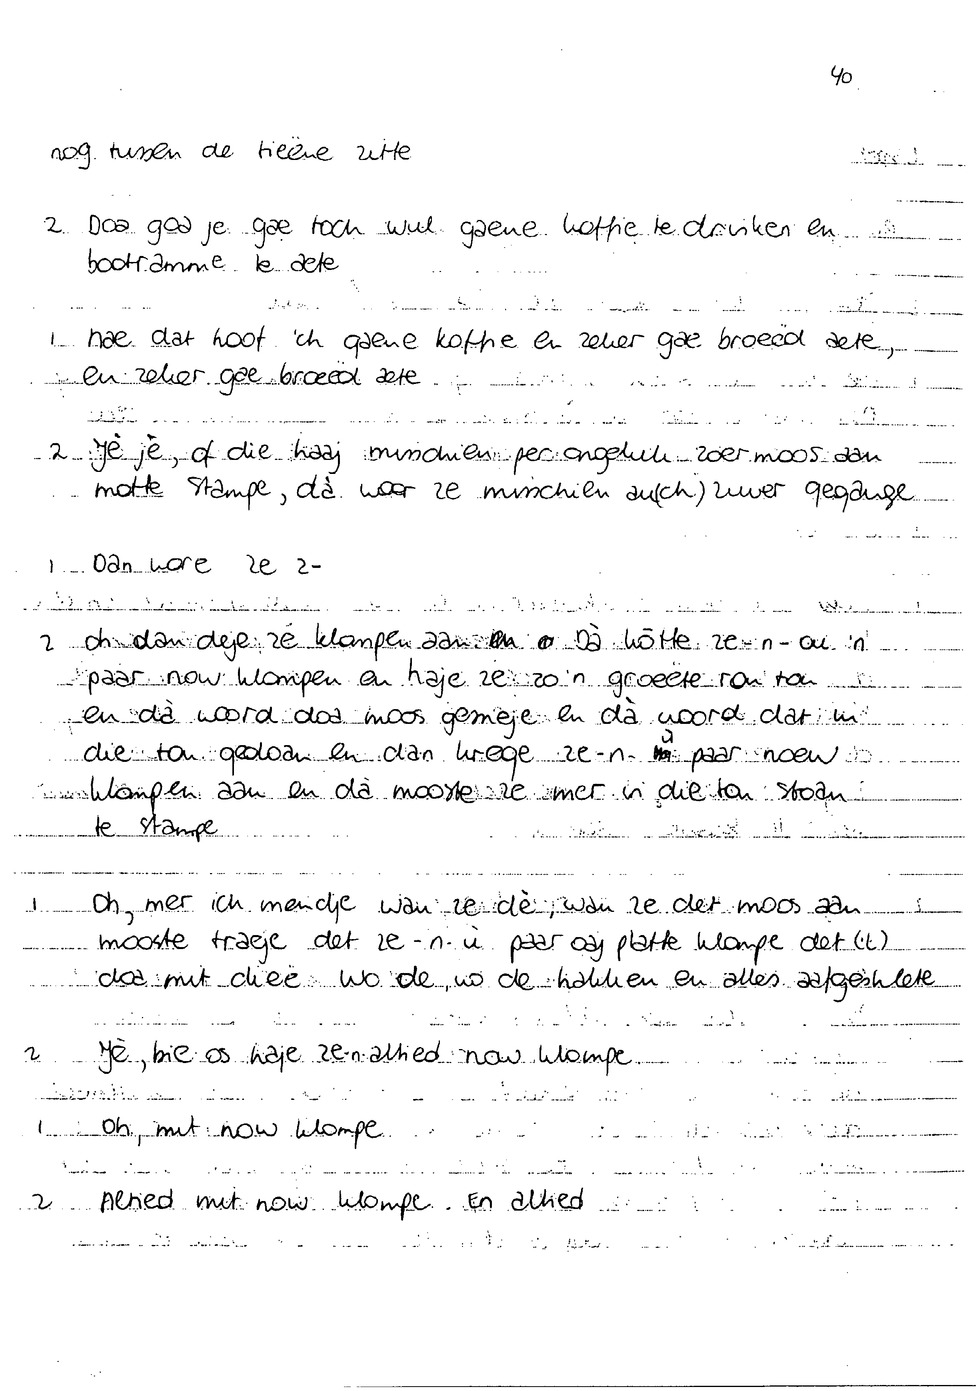 40
nog tussen de tieëne zitte
2 Doa goa je gae toch wul gaene koffie te drinken en
bootramme te aete
1 nae dat hoof 'ch gaene koffie en zeker gae broeëd aete,
en zeker gae broeëd aete
2 Jè jè, of die haaj misschien per ongeluk zoermoos aan
motte stampe, dà woor ze misschien au(ch) zuver gegange
1 Dan wore ze z-
2 oh dan deje ze klompen aan Dà hòtte ze-n-au 'n
paar now klompen en haje ze zo'n groeëte ron ton
en dà woord doa moos gemeje en dà woord dat in
die ton gedoan en dan krege ze-n-ù paar noew
klompen aan en dà mooste ze mer in die ton stoan
te stampe
1 Oh, mer ich mendje wan ze dè, wan ze det moos aan
mooste traeje det ze-n-ù paar oaj platte klompe det (t)
doa mit dieë wo de, wo de hakken en alles aafgeshlete
2 Jè, bie os haje ze-n-altied now klompe
1 Oh, mit now klompe
2 Altied mit now klompe. En altied